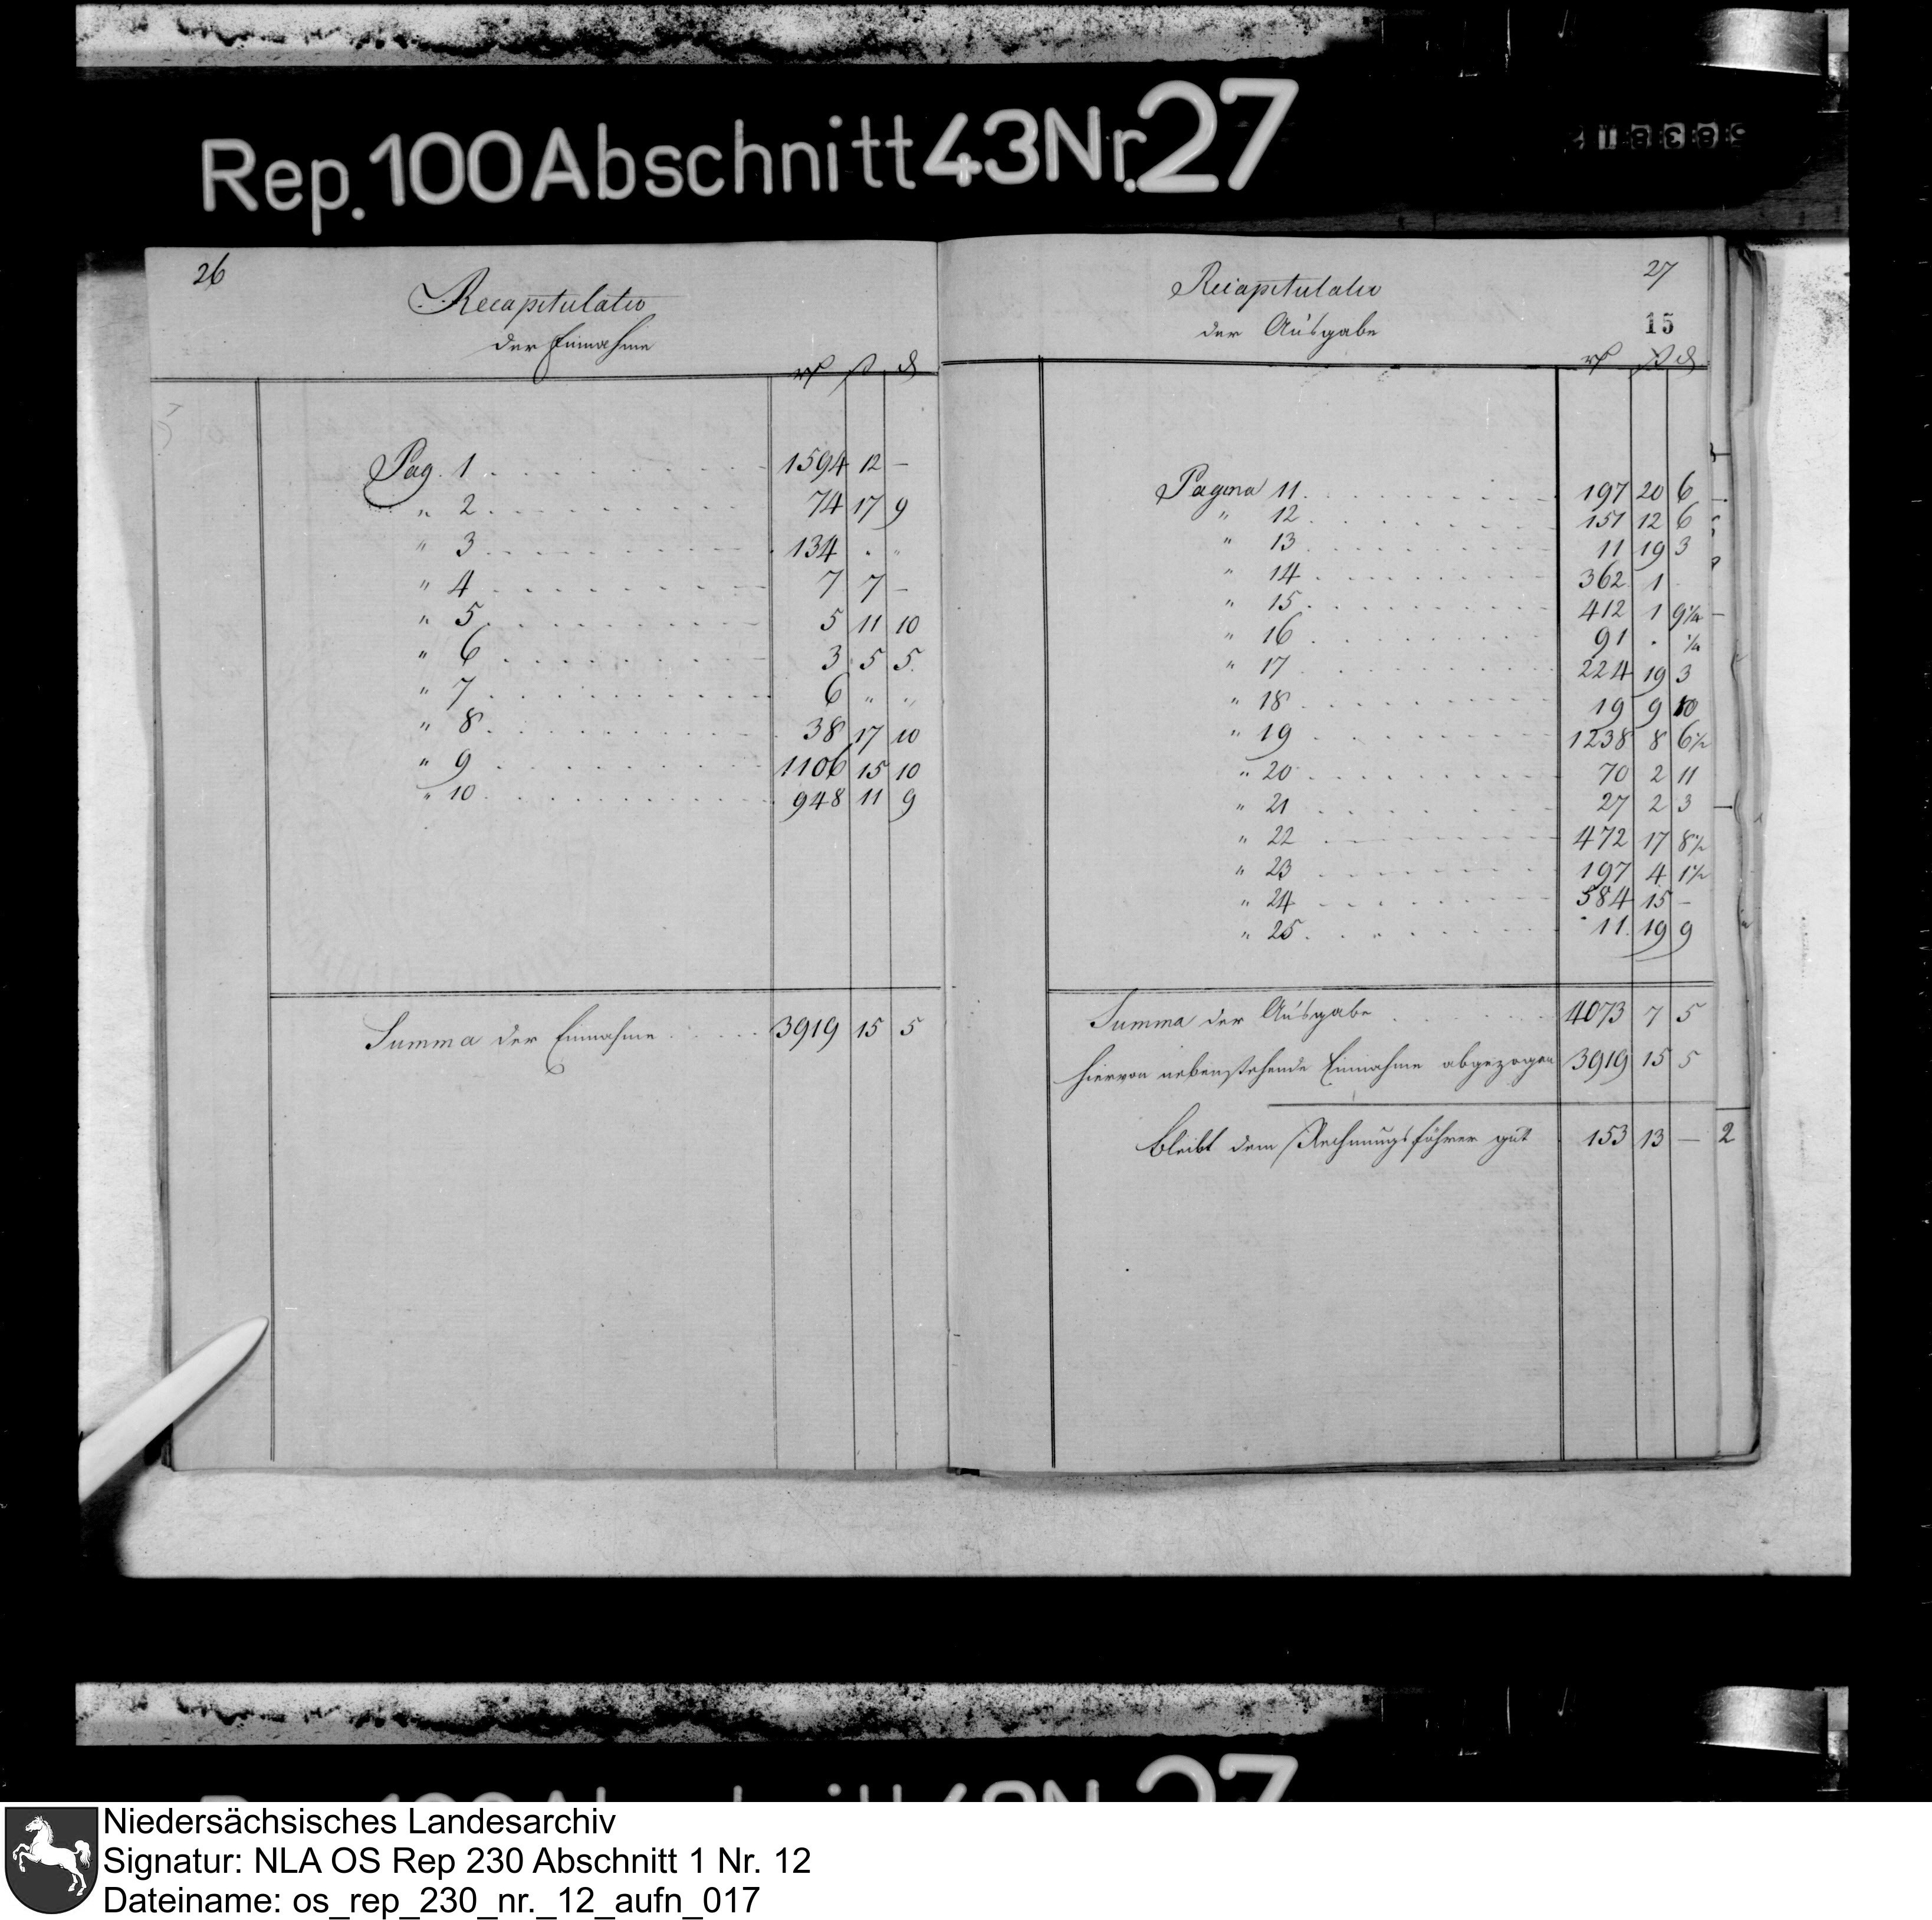 Rep. 100 Abschnitt 43 Nr. 27
26
Recapitulatio
der Einnahme
rℓ ß ₰
Pag. 1 . . . . . . . . 1594 12 –
" 2 . . . . . . . . 74 17 9
" 3 . . . . . . . . 134 . "
" 4 . . . . . . . . 7 7 –
" 5 . . . . . . . . 5 11 10
" 6 . . . . . . . . 3 5 5
" 7 . . . . . . . . 6 " "
" 8 . . . . . . . . 38 17 10
" 9 . . . . . . . . 1106 15 10
" 10 . . . . . . . . 948 11 9
Summa der Einnahme . . . . 3919 15 5
27
Recapitulatio
15
der Ausgabe
rℓ ß ₰
Pagina 11 . . . . . . . . 197 20 6
" 12 . . . . . . . . 151 12 6
" 13 . . . . . . . . 11 19 3
" 14 . . . . . . . . 362 1
" 15 . . . . . . . . 412 1 9½
" 16 . . . . . . . . 91 . ½
" 17 . . . . . . . . 224 19 3
" 18 . . . . . . . . 19 9 10
" 19 . . . . . . . . 1238 8 6½
" 20 . . . . . . . . 70 2 11
" 21 . . . . . . . . 27 2 3
" 22 . . . . . . . . 472 17 8½
" 23 . . . . . . . . 197 4 1½
" 24 . . . . . . . . 584 15 –
" 25 . . . . . . . . 11 19 9
Summa der Ausgabe . . . . 4073 7 5
hiervon nebenstehende Einnahme abgezogen 3919 15 5
bleibt dem Rechnungsführer gut 153 13 –
2
Niedersächsisches Landesarchiv
Signatur: NLA OS Rep 230 Abschnitt 1 Nr. 12
Dateiname: os_rep_230_nr._12_aufn_017